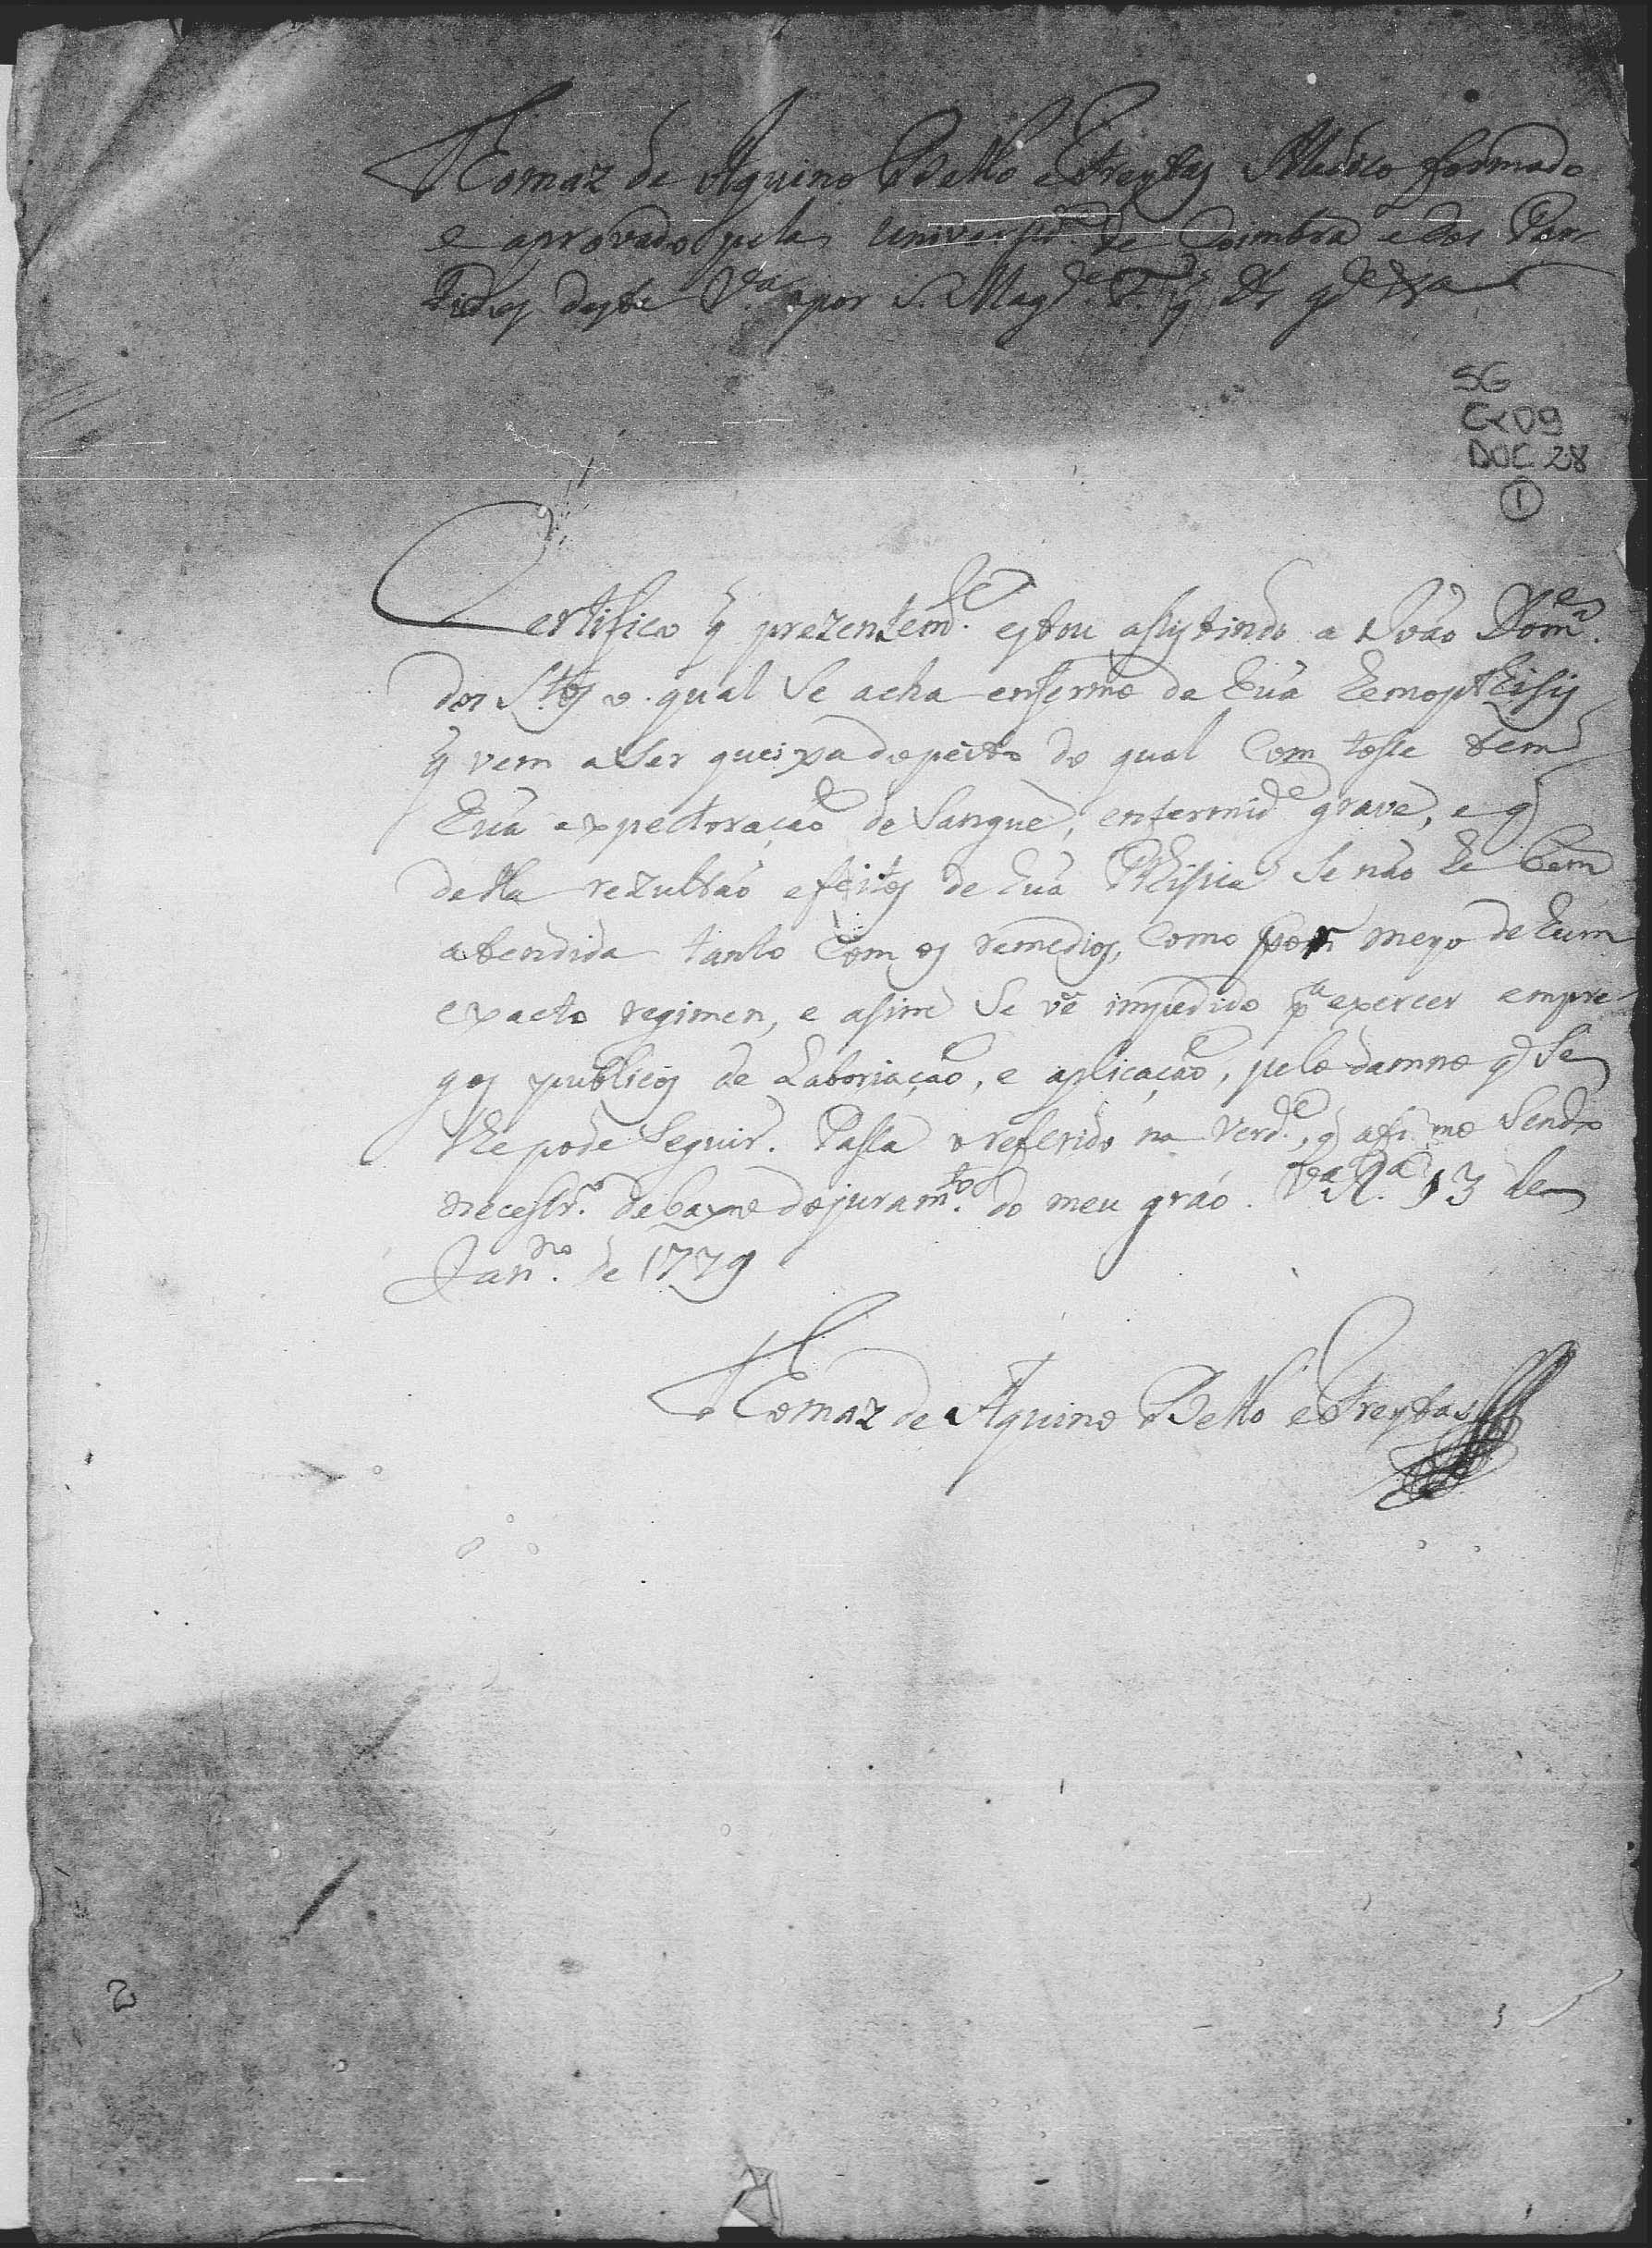 Thomaz de Aquino Bello e Freytas Medico formado
e aprovado pela Universid.e de Coimbra e dos Par-
tidos desta V.a por S. Mag.de F. q̃ Ds g.de &a
SG
CX09
DOC 28
1
Certifico q̃ prezentem.te estou asistindo a João Dom.es
dos S.tos o qual se acha enfermo de huã hemopthisis
q̃ vem a ser queixa do peito do qual com tosse tem
huã expectoração de sangue, enfermid.e grave, e q
della rezultaõ efeitos de huã Phthisica se naõ he bem
atendida tanto com os remedios, como por meyo de hum
exacto regimen, e asim se vê impedido p.a exercer empre-
gos publicos de Laboriação, e aplicação, pelo damno q se
lhe pode seguir. Passa o referido na verd.e, q afirmo sendo
necessr.o debaxo do juram.to do meu gráo. V.a R.a 13 de
Jan.ro de 1779
Thomaz de Aquino Bello e Freytas
2